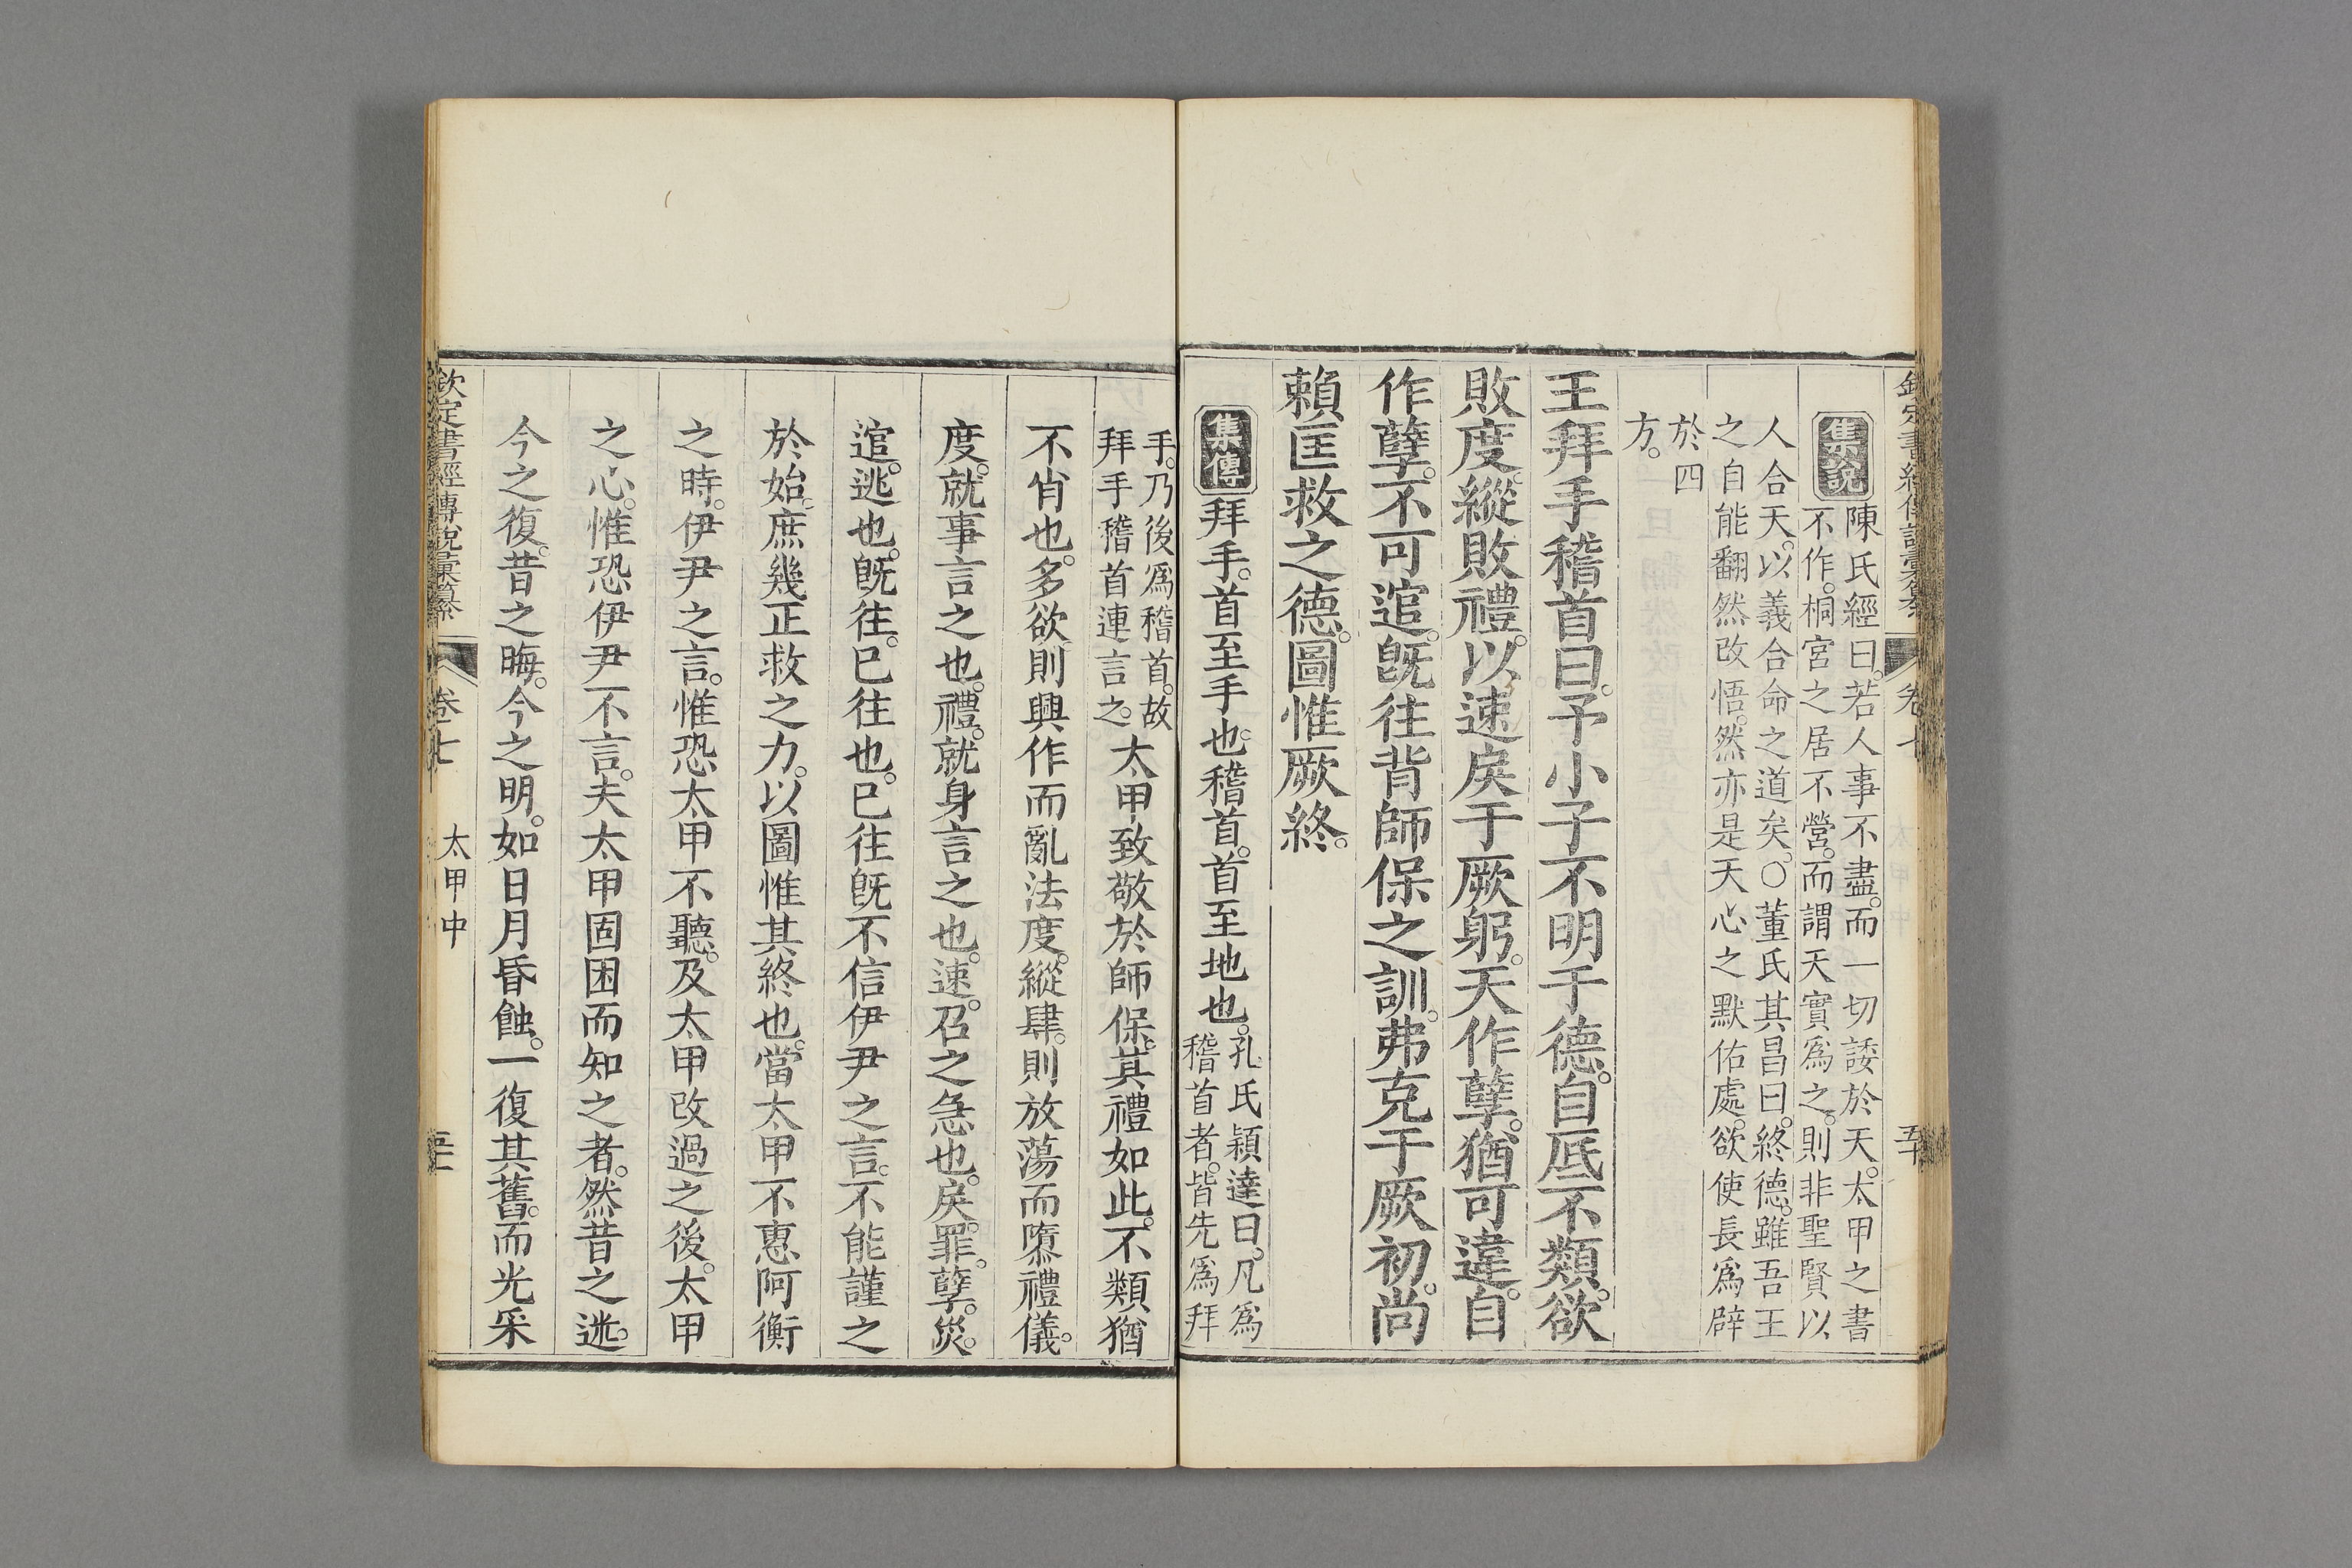 欽定書經傳說彙纂 卷七 五十
集說 陳氏經曰。若人事不盡。而一切諉於天。太甲之書
不作。桐宮之居不營。而謂天實爲之。則非聖賢以
人合天。以義合命之道矣。○董氏其昌曰。終德。雖吾王
之自能翻然改悟。然亦是天心之默佑處。欲使長爲辟
於四
方。
王拜手稽首曰。予小子不明于德。自厎不類。欲
敗度。縱敗禮。以速戾于厥躬。天作孽。猶可違。自
作孽。不可逭。旣往背師保之訓。弗克于厥初。尚
賴匡救之德。圖惟厥終。
集傳 拜手。首至手也。稽首。首至地也。
孔氏穎達曰。凡爲
稽首者。皆先爲拜
手。乃後爲稽首。故
拜手稽首連言之。
太甲致敬於師保。其禮如此。不類猶
不肖也。多欲則興作而亂法度。縱肆。則放蕩而隳禮儀。
度。就事言之也。禮。就身言之也。速。召之急也。戾。罪。孽。災。
逭。逃也。旣往。已往也。已往旣不信伊尹之言。不能謹之
於始。庶幾正救之力。以圖惟其終也。當太甲不惠阿衡
之時。伊尹之言。惟恐太甲不聽。及太甲改過之後。太甲
之心。惟恐伊尹不言。夫太甲固困而知之者。然昔之迷。
今之復。昔之晦。今之明。如日月昏蝕。一復其舊。而光采
欽定書經傳說彙纂 卷七 太甲中